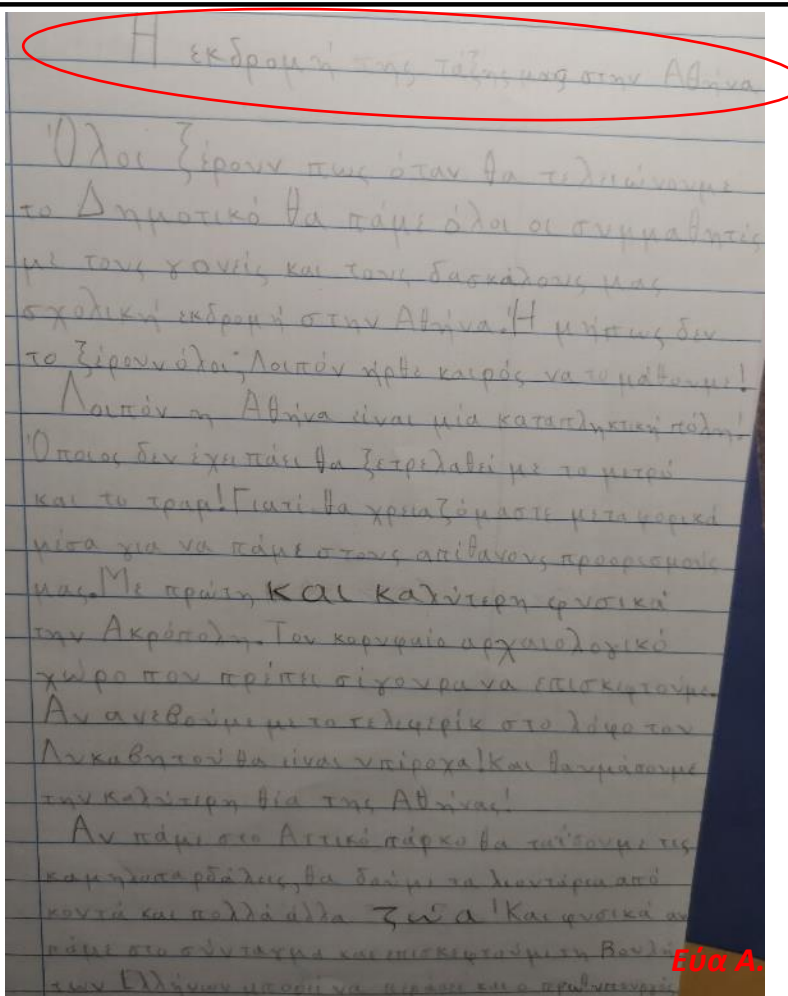 Η εκδρομή της τάξης μας στην Αθήνα
Όλοι ξέρουν πως όταν θα τελειώνουμε
το Δημοτικό θα πάμε όλοι οι συμμαθητές
με τους γονείς και τους δασκάλους μας
σχολική εκδρομή στην Αθήνα. Ή μήπως δεν
το ξέρουν όλοι; Λοιπόν ήρθε καιρός να το μάθουμε!
Λοιπόν η Αθήνα είναι μία καταπληκτική πόλη!
Όποιος δεν έχει πάει θα ξετρελαθεί με το μετρό
και το τραμ! Γιατί θα χρειαζόμαστε μεταφορικά
μέσα για να πάμε στους απίθανους προορισμούς
μας. Με πρώτη και καλύτερη φυσικά
την Ακρόπολη. Τον κορυφαίο αρχαιολογικό
χώρο που πρέπει σίγουρα να επισκεφτούμε.
Αν ανεβούμε με το τελεφερίκ στο λόφο του
Λυκαβητού θα είναι υπέροχα! Και θαυμάσουμε
την καλύτερη θέα της Αθήνας!
Αν πάμε στο Αττικό πάρκο θα ταΐσουμε τις
καμηλοπαρδάλεις, θα δούμε τα λιοντάρια από
κοντά και πολλά άλλα ζώα! Και φυσικά αν
πάμε στο σύνταγμα και επισκεφτούμε τη Βουλή
των Ελλήνων μπορεί να περάσει και ο πρωθυπουργός
Εύα Λ.